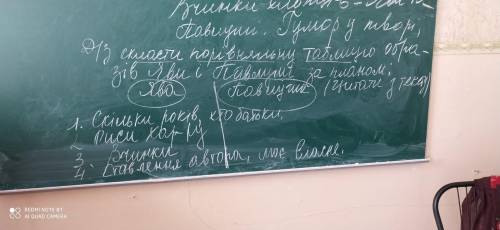 Вчинки хлопців - Яви та
Павлуші. Гумор у творі,
Д/з скласти порівняльну таблицю обра-
зів Яви і Павлуші за планом, (цитати з тексту)
Ява Павлуша
1. Скільки років, хто батьки.
2. Риси хар-ру
3. Вчинки
4. Ставлення автора, моє власне.
REDMI NOTE 8T
AI QUAD CAMERA